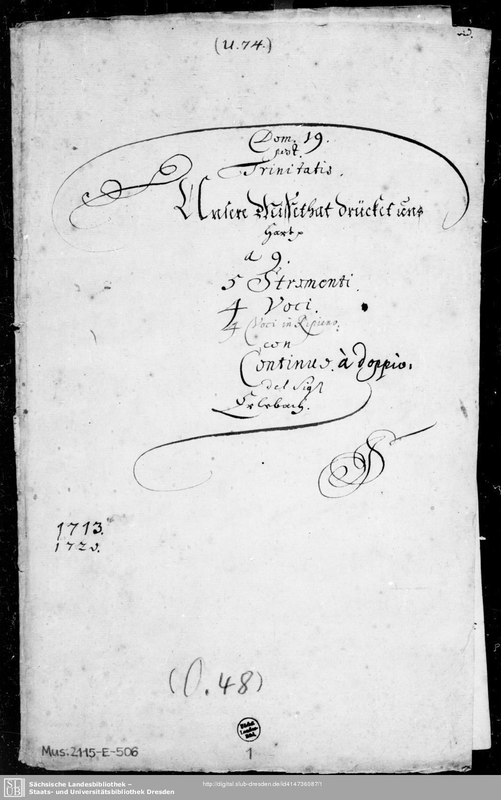 (U. 74.)
Dom. 19.
post.
Trinitatis.
Unsere Missethat drücket uns
hart
a 9.
5 Stromenti.
4 Voci.
4 Voci in Ripieno.
con
Continuo. à doppio.
del Sigr
Erlebach.
1713.
1720.
(O. 48)
Mus. 2115-E-506
1
Sächsische Landesbibliothek –
Staats- und Universitätsbibliothek Dresden